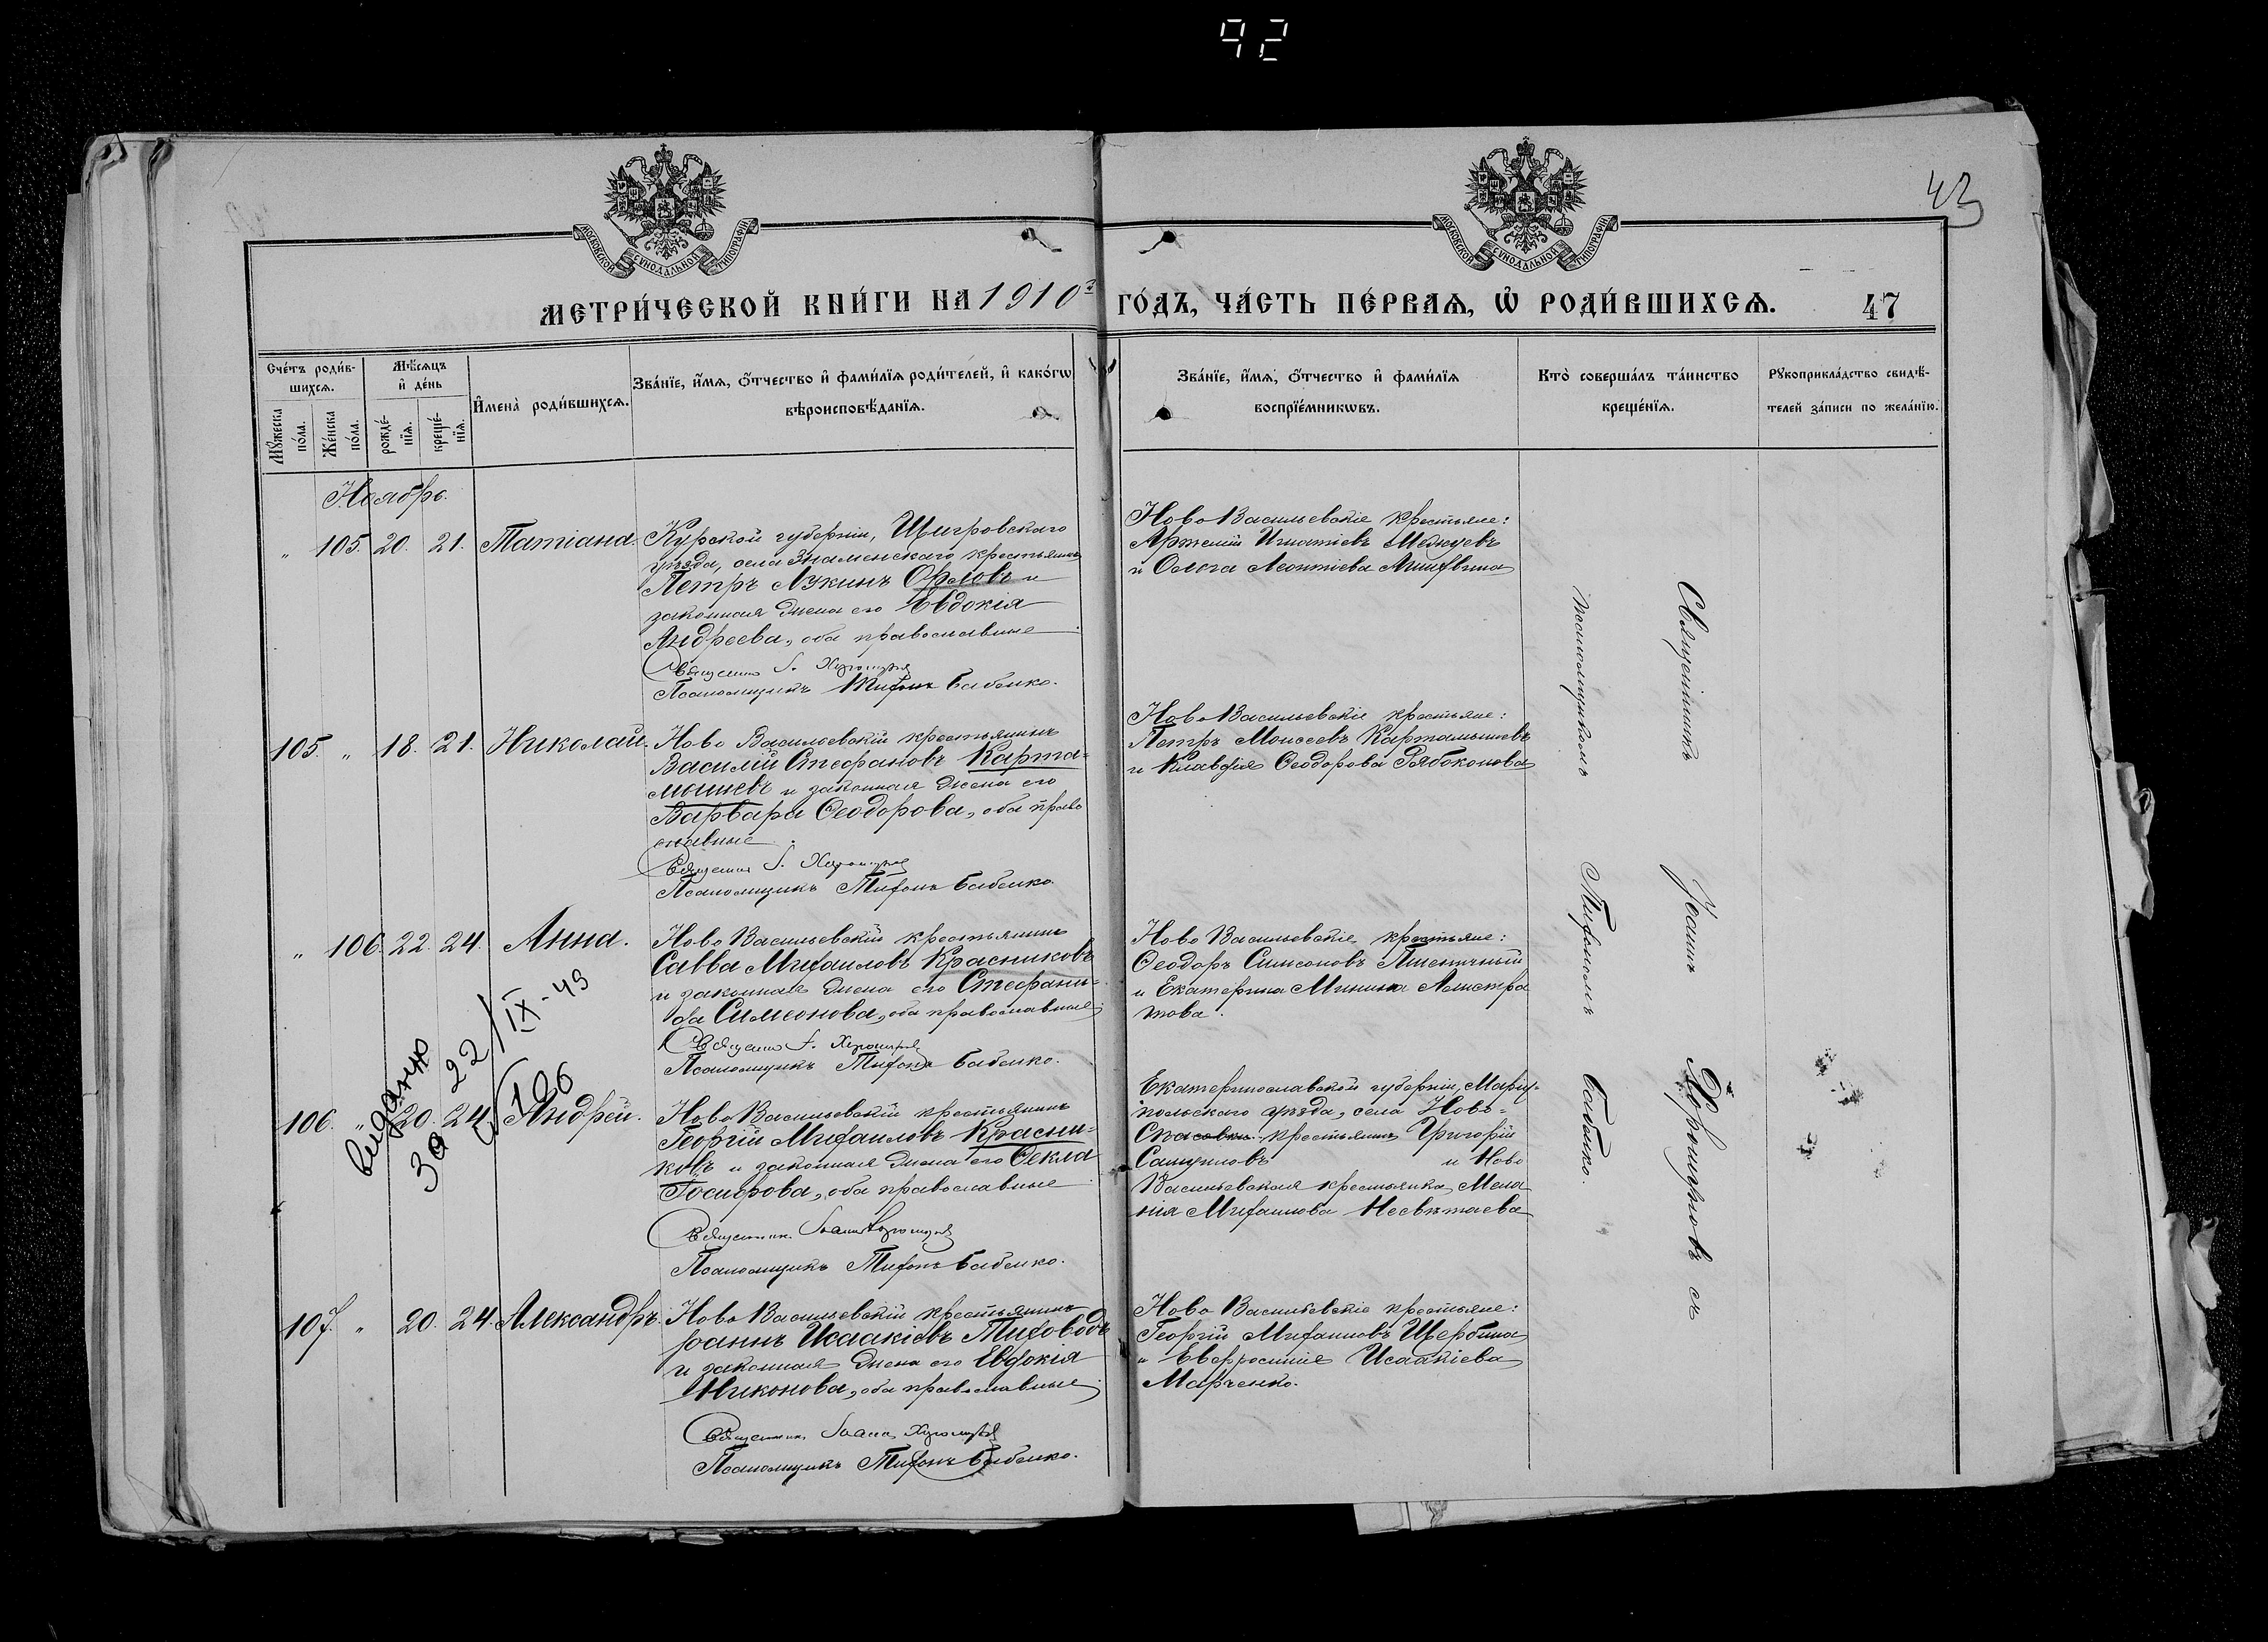 92
43
МОСКОВСКОЙ СѴНОДАЛЬНОЙ ТИПОГРАФІИ
МОСКОВСКОЙ СѴНОДАЛЬНОЙ ТИПОГРАФІИ
МЕТРИ́ЧЕСКОЙ КНИ́ГИ НА 1910й ГО́ДЪ, ЧА́СТЬ ПЕ́РВАѦ, Ѡ҆ РОДИ́ВШИХСѦ. 47
Сче́тъ роди́в-
шихсѧ.
Мꙋ́жеска по́ла.
Же́нска по́ла.
Мѣ́сѧцъ
и҆ де́нь
рожде́-
нїѧ.
креще́-
нїѧ.
И҆мена̀ роди́вшихсѧ.
Зва́нїе, и҆́мѧ, ѻ҆́тчество и҆ фами́лїѧ роди́телей, и҆ како́гѡ
вѣроисповѣ́данїѧ.
Зва́нїе, и҆́мѧ, ѻ҆́тчество и҆ фами́лїѧ
воспрїе́мникѡвъ.
Кто̀ соверша́лъ та́инство
креще́нїѧ.
Рꙋкоприкла́дство свидѣ́-
телей за́писи по жела́нїю.
Ноябрь.
„ 105. 20. 21. Татіана.
Курской губерніи, Щигровскаго
уѣзда, села Знаменскаго крестьянинъ
Петръ Лукинъ Орловъ и
законная жена его Евдокія
Андреева, оба православные
Священникъ І.
Псаломщикъ Тихонъ Бабенко.
Ново Васильевскіе крестьяне:
Артемій Игнатіевъ
и Ольга Леонтіева
105. „ 18. 21. Николай.
Ново Васильевскій крестьянинъ
Василій Стефановъ Карта-
мышевъ и законная жена его
Варвара Ѳеодорова, оба право
славные
Священникъ І.
Псаломщикъ Тихонъ Бабенко.
Ново Васильевскіе крестьяне:
Петръ Моисеевъ Картамышевъ
и Клавдія Ѳеодорова Рябоконова
„ 106. 22. 24. Анна.
Ново Васильевскій крестьянинъ
Савва Михаиловъ Красниковъ
и законная жена его Стефани-
да Симеонова, оба православные
Священникъ І.
Псаломщикъ Тихонъ Бабенко.
Ново Васильевскіе крестьяне:
Ѳеодоръ Симеоновъ Пшеничный
и Екатерина Минина
видано
за 22/IX-49
№ 106
106. „ 20. 24. Андрей.
Ново Васильевскій крестьянинъ
Георгій Михаиловъ Красни-
ковъ и законная жена его Ѳекла
оба православные
Священникъ Іоаннъ
Псаломщикъ Тихонъ Бабенко.
Екатеринославской губерніи, Маріу-
польскаго уѣзда, села Ново-
Спасовки крестьянинъ Григорій
и Ново
Васильевская крестьянка Мела
нія Михаилова Несвѣтаева
107. „ 20. 24. Александръ.
Ново Васильевскій крестьянинъ
Іоаннъ Исаакіевъ Тиховодъ
и законная жена его Евдокія
Никонова, оба православные
Священникъ Іоаннъ
Псаломщикъ Тихонъ Бабенко.
Ново Васильевскіе крестьяне:
Георгій Михаиловъ Щербина
и Евфросинія Исаакіева
Марченко.
Священникъ Іоаннъ Хорошуновъ съ
псаломщикомъ Тихономъ Бабенко.